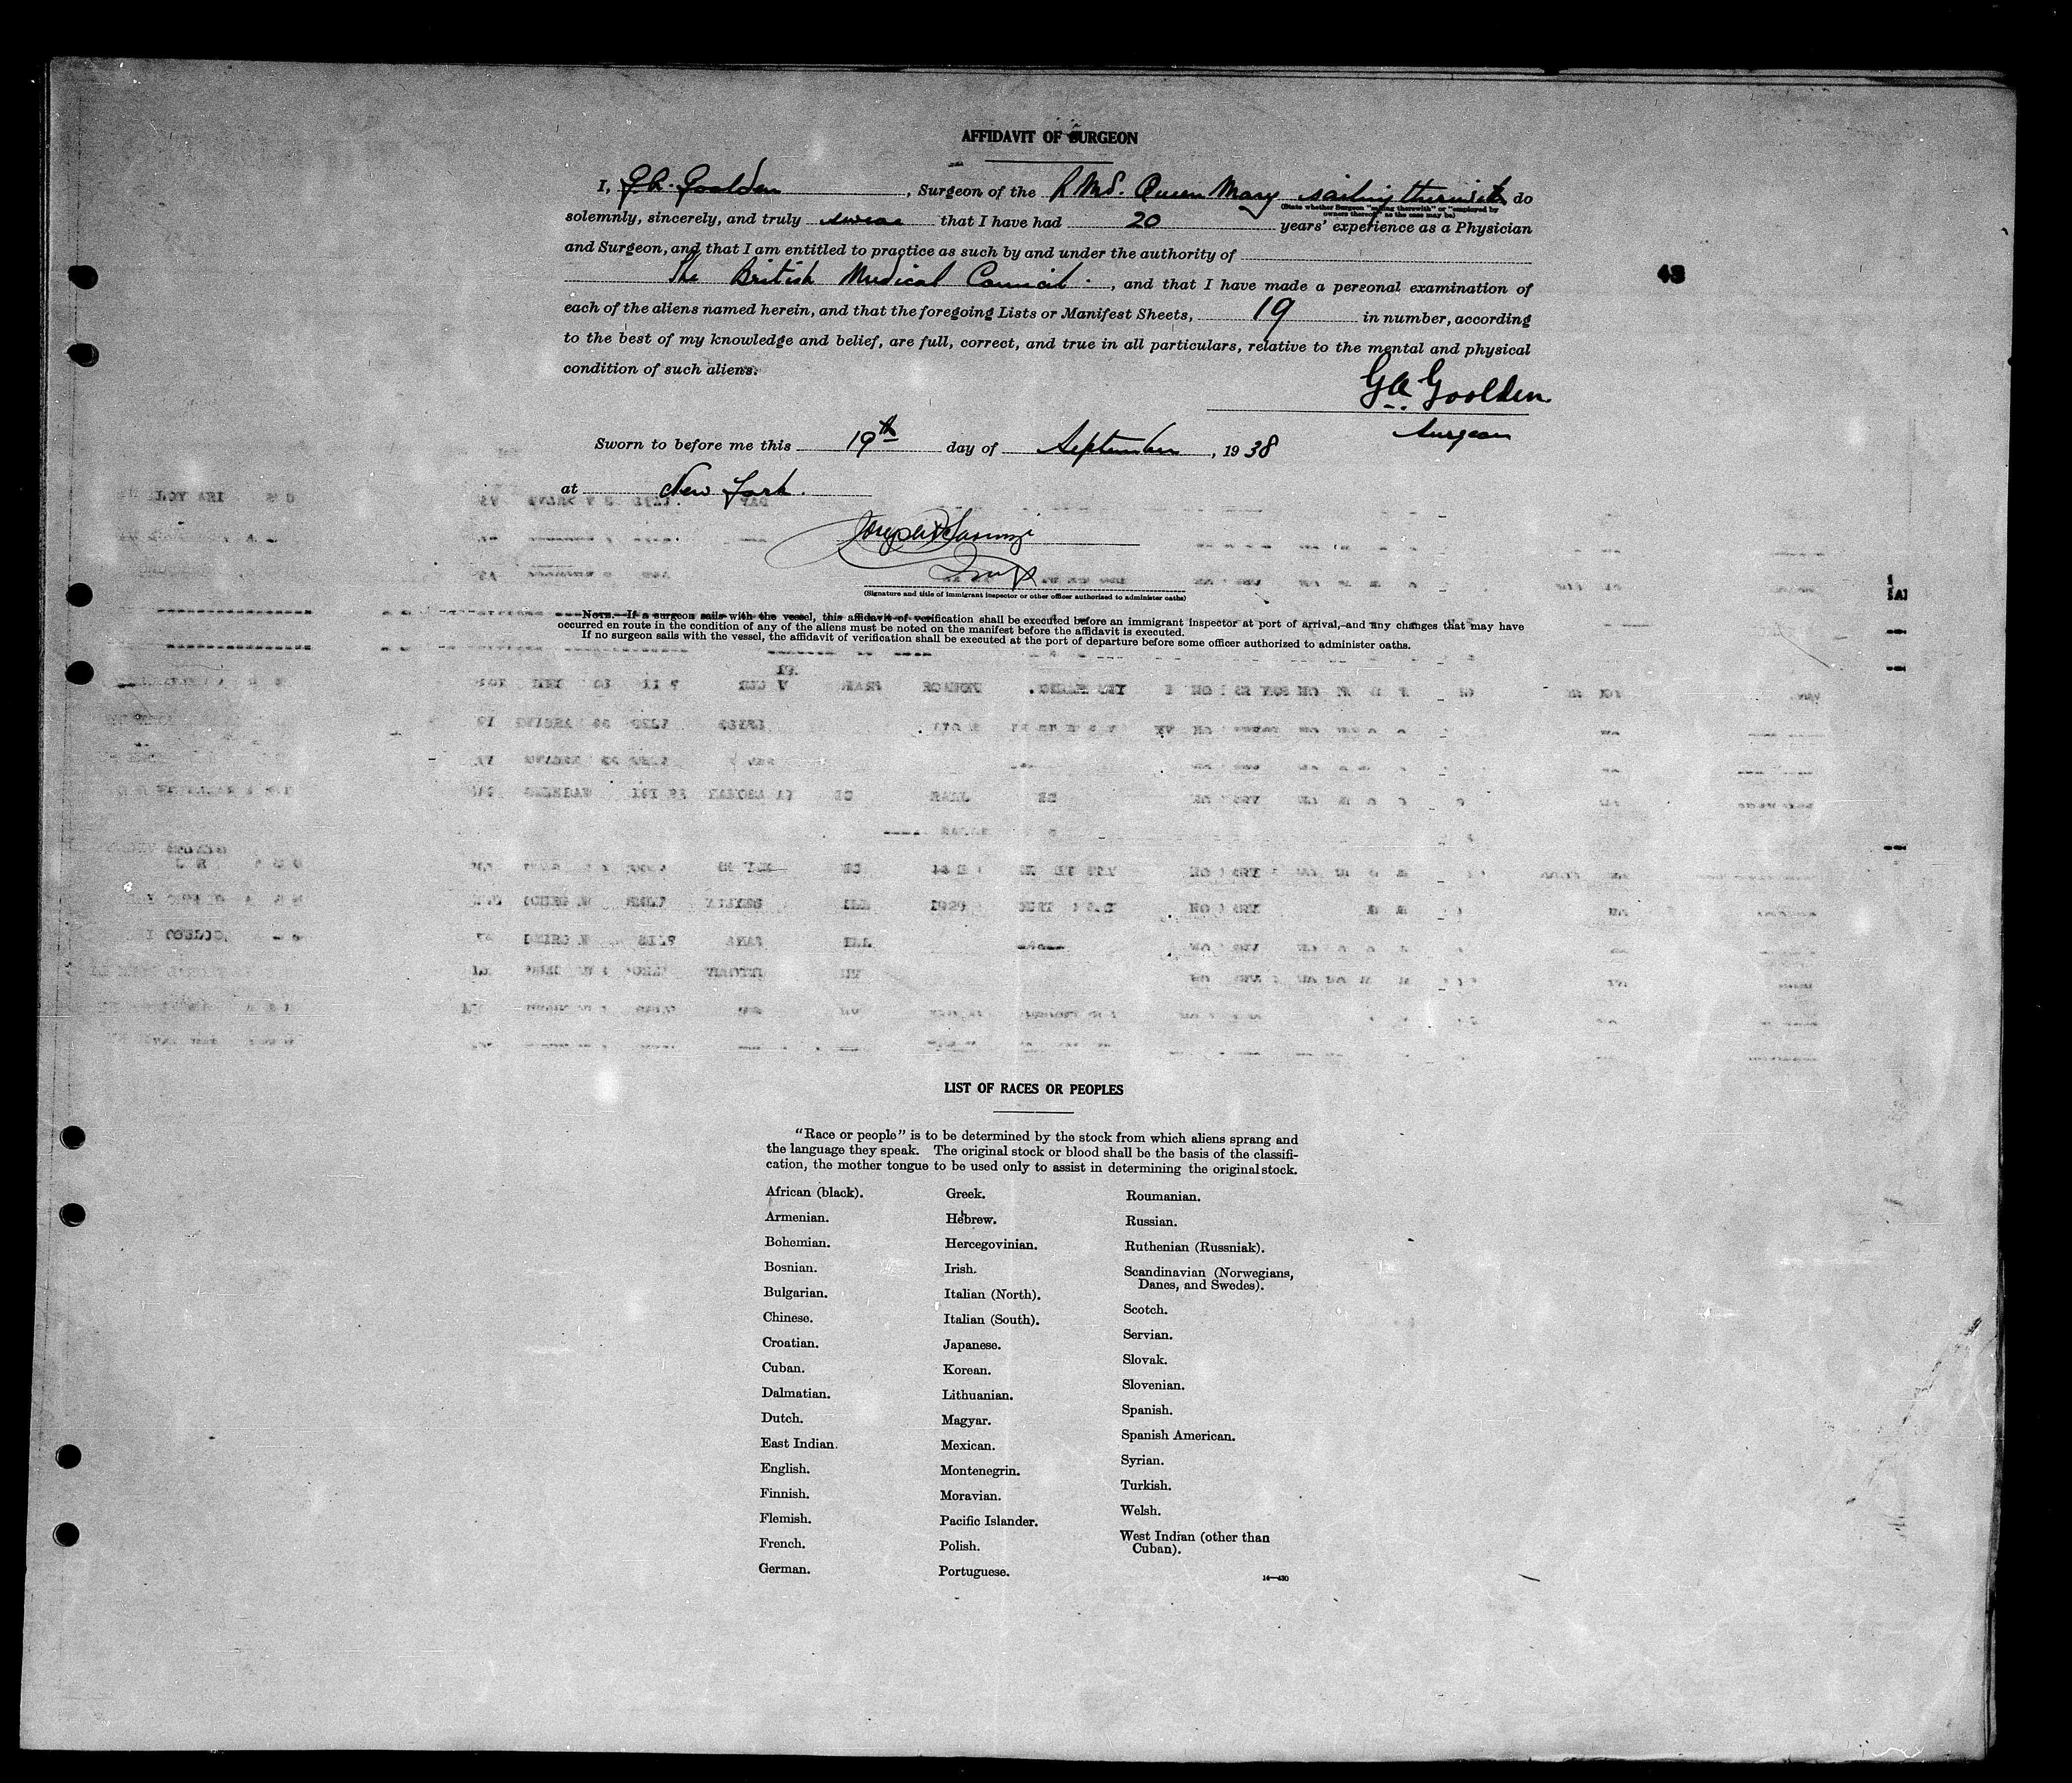 AFFIDAVIT OF SURGEON
I, G.A. Goolden, Surgeon of the R.M.S. Queen Mary sailing therewith do
(State whether Surgeon "sailing therewith" or "employed by
owners thereof," as the case may be)
solemnly, sincerely, and truly swear that I have had 20 years' experience as a Physician
and Surgeon, and that I am entitled to practice as such by and under the authority of
The British Medical Council, and that I have made a personal examination of
43
each of the aliens named herein, and that the foregoing Lists or Manifest Sheets, 19 in number, according
to the best of my knowledge and belief, are full, correct, and true in all particulars, relative to the mental and physical
condition of such aliens.
GA Goolden
Surgeon
Sworn to before me this 19th day of September, 1938
at New York.
(Signature and title of immigrant inspector or other officer authorized to administer oaths)
NOTE.—If a surgeon sails with the vessel, this affidavit of verification shall be executed before an immigrant inspector at port of arrival, and any changes that may have
occurred en route in the condition of any of the aliens must be noted on the manifest before the affidavit is executed.
If no surgeon sails with the vessel, the affidavit of verification shall be executed at the port of departure before some officer authorized to administer oaths.
LIST OF RACES OR PEOPLES
"Race or people" is to be determined by the stock from which aliens sprang and
the language they speak. The original stock or blood shall be the basis of the classifi-
cation, the mother tongue to be used only to assist in determining the original stock.
African (black).
Armenian.
Bohemian.
Bosnian.
Bulgarian.
Chinese.
Croatian.
Cuban.
Dalmatian.
Dutch.
East Indian.
English.
Finnish.
Flemish.
French.
German.
Greek.
Hebrew.
Hercegovinian.
Irish.
Italian (North).
Italian (South).
Japanese.
Korean.
Lithuanian.
Magyar.
Mexican.
Montenegrin.
Moravian.
Pacific Islander.
Polish.
Portuguese.
Roumanian.
Russian.
Ruthenian (Russniak).
Scandinavian (Norwegians,
Danes, and Swedes).
Scotch.
Servian.
Slovak.
Slovenian.
Spanish.
Spanish American.
Syrian.
Turkish.
Welsh.
West Indian (other than
Cuban).
14—430